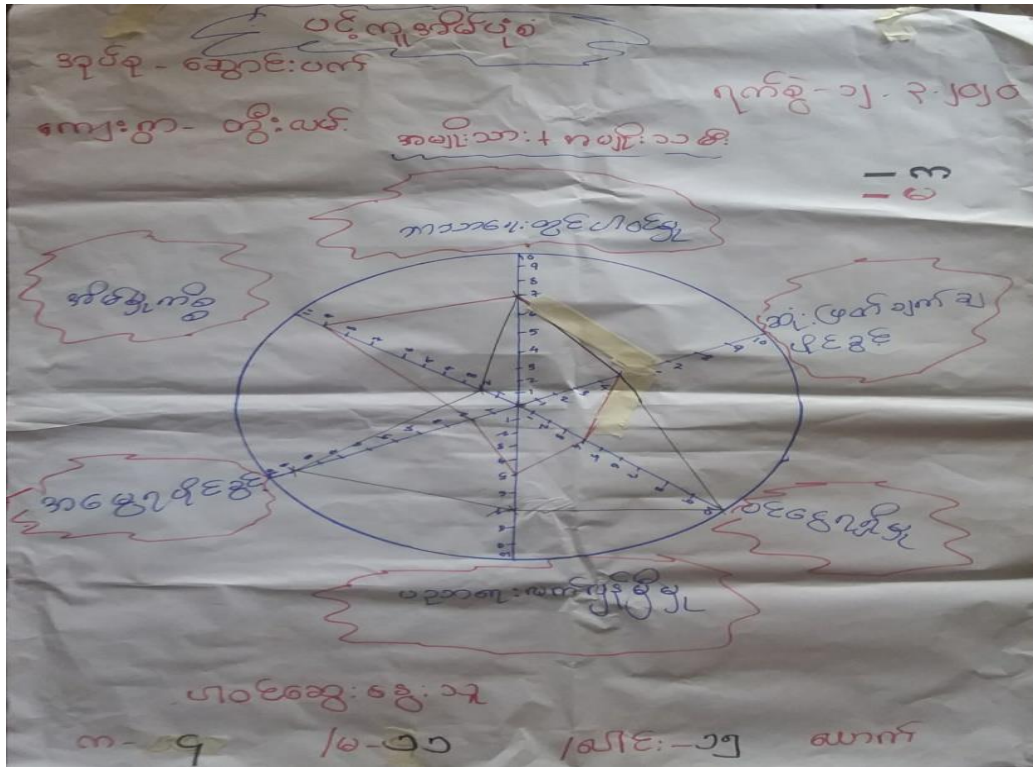 ပင့်ကူအိမ်ပုံစံ
အုပ်စု - ဆောင်းပတ်
ရက်စွဲ - ၁၂. ၃. ၂၀၂၀
ကျေးရွာ -
အမျိုးသား + အမျိုးသမီး
ဘာသာရေးတွင်ပါဝင်မှု
အိမ်မှုကိစ္စ
ဆုံးဖြတ်ချက်ချ
ပိုင်ခွင့်
အမွေရပိုင်ခွင့်
ဝင်ငွေရရှိမှု
ပညာရေးလက်လှမ်းမီမှု
ပါဝင်ဆွေးနွေးသူ
က - ၄ /မ - ၁၁ /ပေါင်း - ၁၅ ယောက်